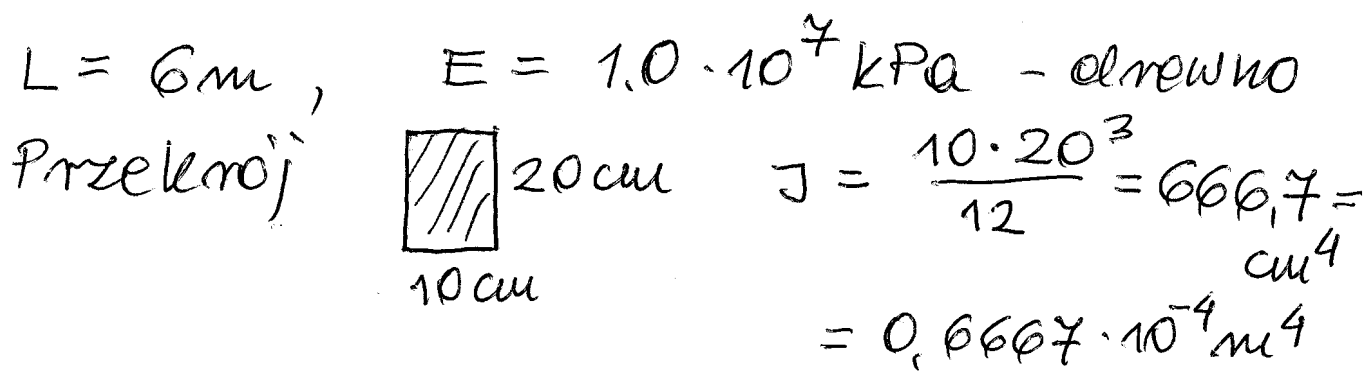 L = 6m, E = 1.0 · 10⁷ kPa - drewno
Przekrój 20 cm J = 10 · 20³ / 12 = 666,7 =
cm⁴
10 cm
= 0,6667 · 10⁻⁴ m⁴